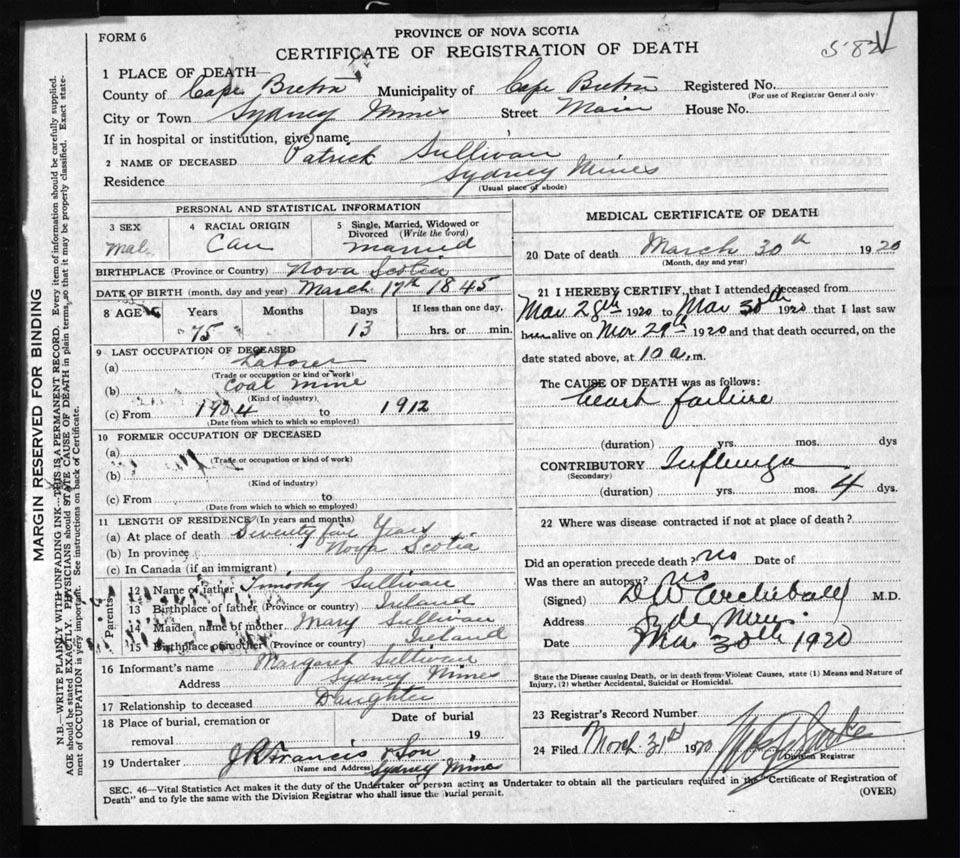 FORM 6
PROVINCE OF NOVA SCOTIA
CERTIFICATE OF REGISTRATION OF DEATH
582
1 PLACE OF DEATH—
County of Cape Breton Municipality of Cape Breton Registered No.
(For use of Registrar General only)
City or Town Sydney Mines Street Main House No.
If in hospital or institution, give name
2 NAME OF DECEASED Patrick Sullivan
Residence Sydney Mines
(Usual place of abode)
MARGIN RESERVED FOR BINDING
N.B.—WRITE PLAINLY WITH UNFADING INK—THIS IS A PERMANENT RECORD. Every item of information should be carefully supplied.
AGE should be stated EXACTLY. PHYSICIANS should STATE CAUSE OF DEATH in plain terms, so that it may be properly classified. Exact state-
ment of OCCUPATION is very important. See instructions on back of Certificate.
PERSONAL AND STATISTICAL INFORMATION
3 SEX
Male
4 RACIAL ORIGIN
Can
5 Single, Married, Widowed or
Divorced (Write the word)
married
BIRTHPLACE (Province or Country) Nova Scotia
DATE OF BIRTH (month, day and year) March 17th 1845
8 AGE Years Months Days If less than one day,
75 13 hrs. or min.
9 LAST OCCUPATION OF DECEASED
(a) Laborer
(Trade or occupation or kind of work)
(b) Coal mine
(Kind of industry)
(c) From 1904 to 1912
(Date from which to which so employed)
10 FORMER OCCUPATION OF DECEASED
(a)
(Trade or occupation or kind of work)
(b)
(Kind of industry)
(c) From to
(Date from which to which so employed)
11 LENGTH OF RESIDENCE (In years and months)
(a) At place of death Seventy five Years
(b) In province Nova Scotia
(c) In Canada (if an immigrant)
Parents
12 Name of father Timothy Sullivan
13 Birthplace of father (Province or country) Ireland
14 Maiden name of mother Mary Sullivan
15 Birthplace of mother (Province or country) Ireland
16 Informant's name Margaret Sullivan
Address Sydney Mines
17 Relationship to deceased Daughter
18 Place of burial, cremation or Date of burial
removal 19
19 Undertaker J R Francis & Son
(Name and Address) Sydney Mines
MEDICAL CERTIFICATE OF DEATH
20 Date of death March 30th 1920
(Month, day and year)
21 I HEREBY CERTIFY, that I attended deceased from
Mar 28th 1920 to Mar 30th 1920 that I last saw
him alive on Mar 29th 1920 and that death occurred, on the
date stated above, at 10 a.m.
The CAUSE OF DEATH was as follows:
Heart failure
(duration) yrs. mos. dys
CONTRIBUTORY Influenza
(Secondary)
(duration) yrs. mos. 4 dys.
22 Where was disease contracted if not at place of death?
Did an operation precede death? no Date of
Was there an autopsy? no
(Signed) D W Archibald M.D.
Address Syd Mines
Date Mar 30th 1920
State the Disease causing Death, or in death from Violent Causes, state (1) Means and Nature of
Injury, (2) whether Accidental, Suicidal or Homicidal.
23 Registrar's Record Number
24 Filed March 31st 1920
Division Registrar
SEC. 46—Vital Statistics Act makes it the duty of the Undertaker or person acting as Undertaker to obtain all the particulars required in the "Certificate of Registration of
Death" and to fyle the same with the Division Registrar who shall issue the burial permit.
(OVER)